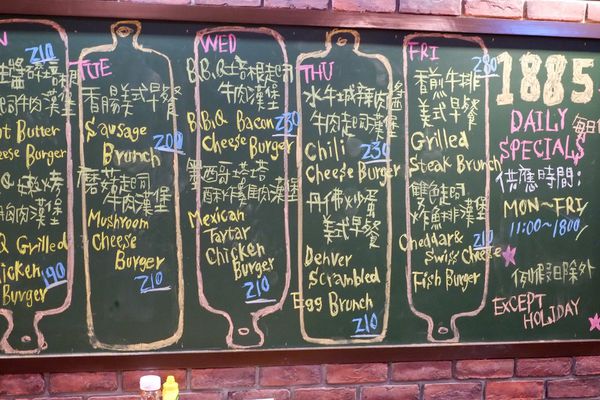 N
210
牛肉漢堡
ot Butter
heese Burger
Q Grilled
hicken
Burger
190
TUE
香腸美式早餐
Sausage
Brunch
200
蘑菇起司
牛肉漢堡
Mushroom
Cheese
Burger
210
WED
B.B.Q培根起司
牛肉漢堡
B.B.Q Bacon
Cheese Burger
230
墨西哥塔塔
雞肉漢堡
Mexican
Tartar
Chicken
Burger
210
THU
牛肉起司漢堡
Chili
Cheese Burger
230
丹佛炒蛋
美式早餐
Denver
Scrambled
Egg Brunch
210
FRI
香煎牛排
美式早餐
280
Grilled
Steak Brunch
雙起司
炸魚排漢堡
Cheddar&
Swiss Cheese
Fish Burger
210
1885
DAILY
SPECIALS
供應時間:
MON~FRI
11:00~18:00
例假日除外
EXCEPT
HOLIDAY